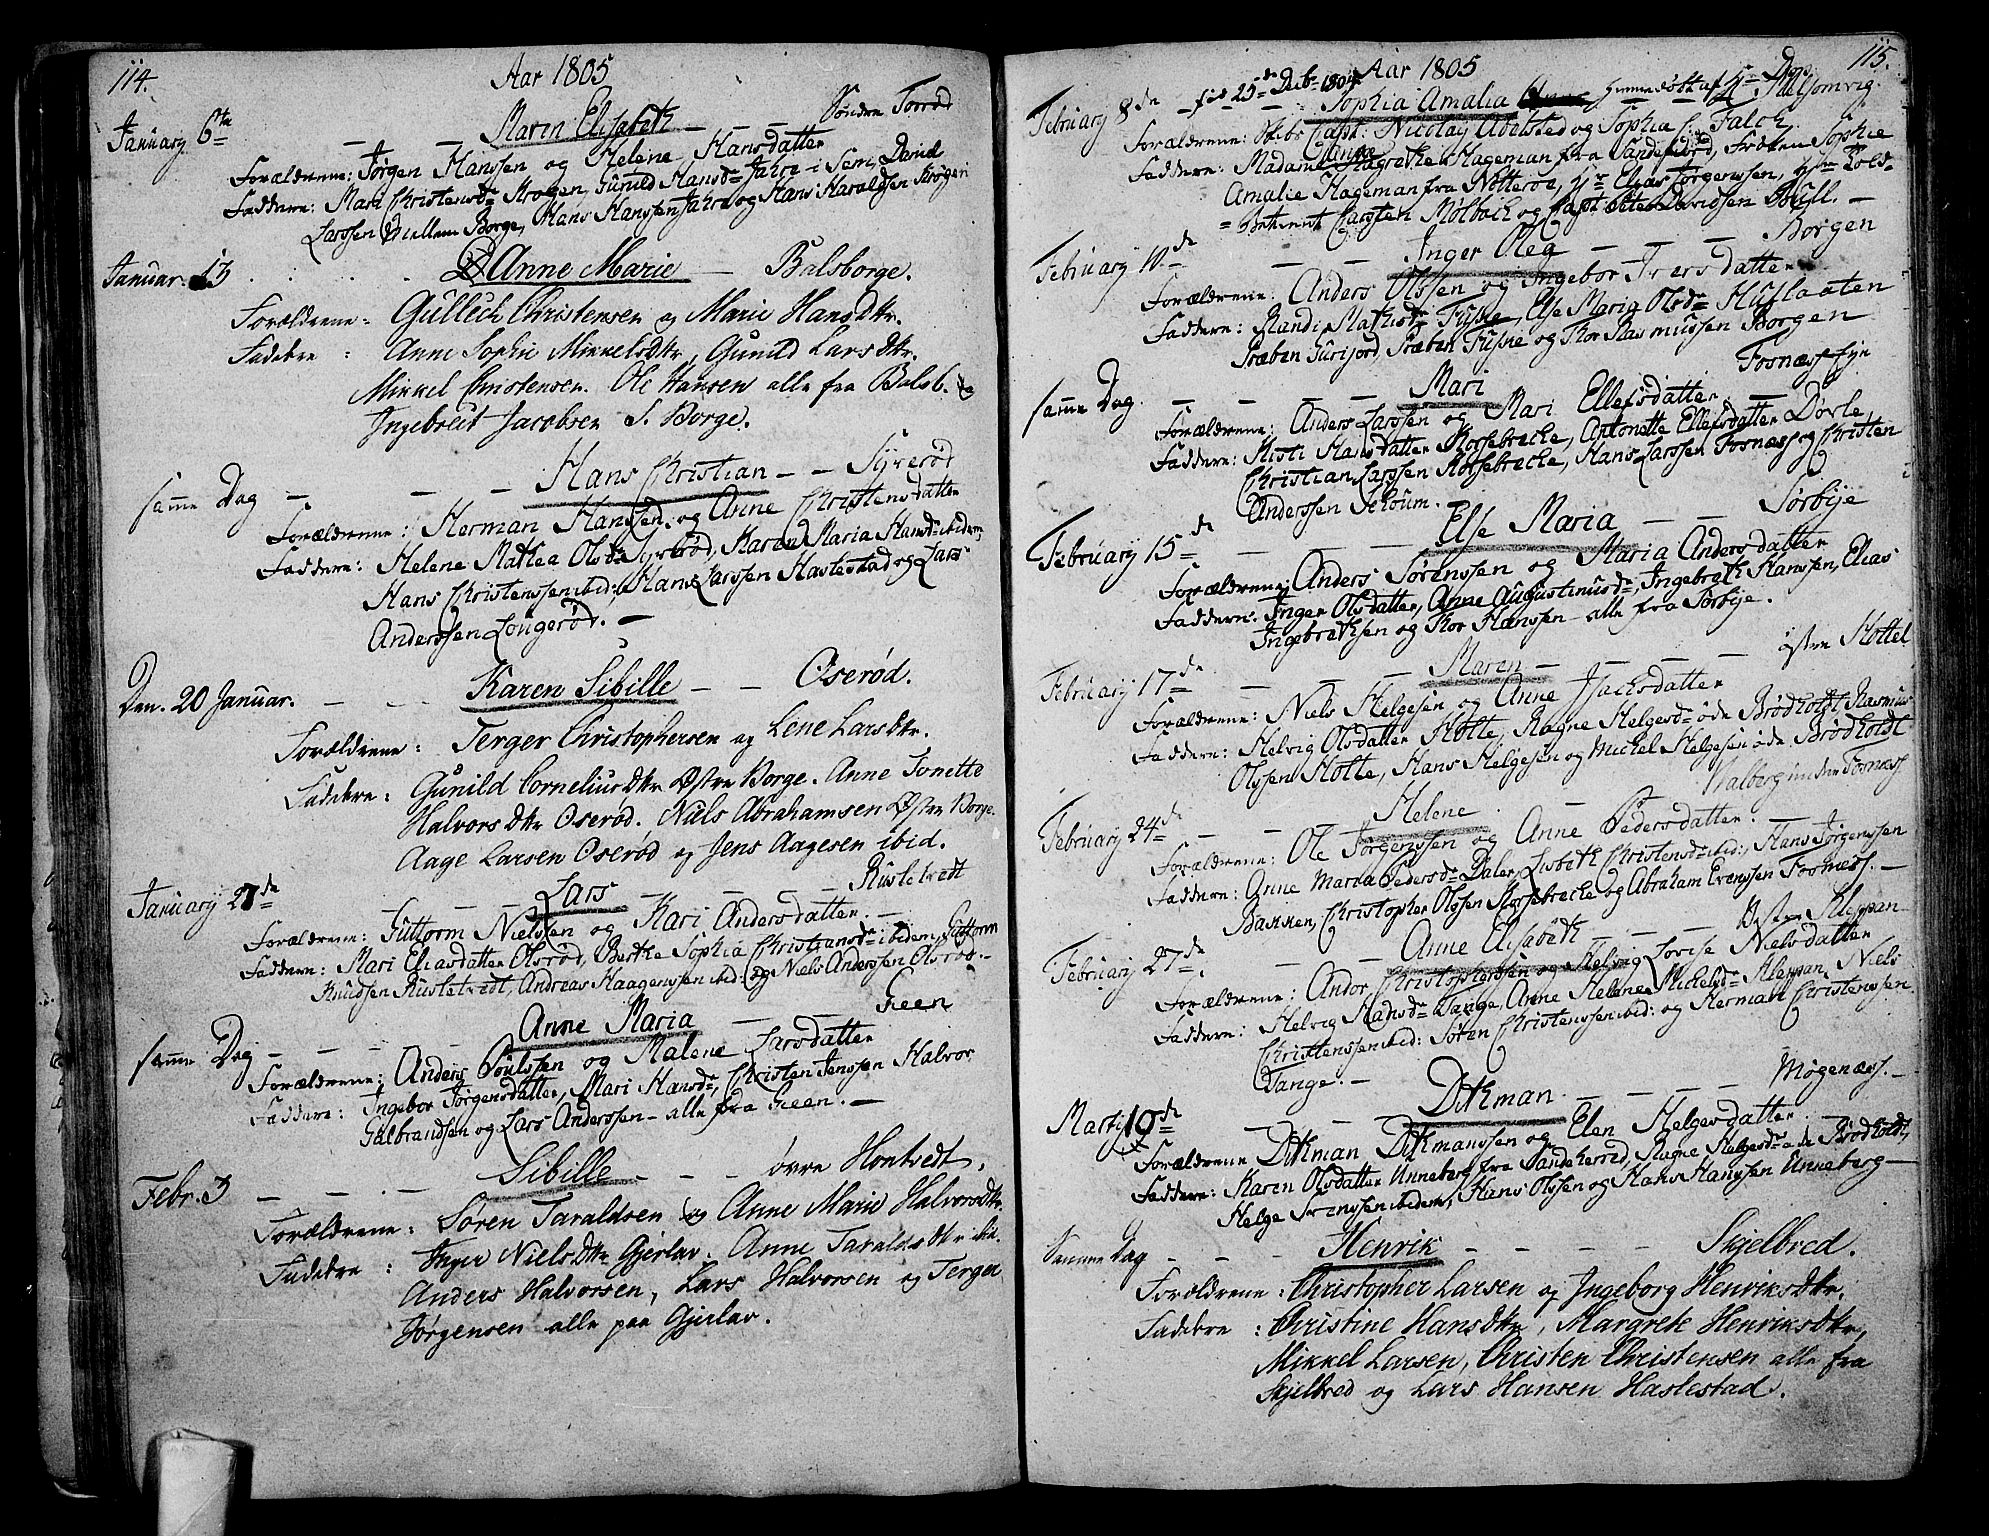 114.
Aar 1805
January 6te — — Maren Elisabeth — Søndre Torrød
Forældrene: Jørgen Hanssen og Helene Hansdatter
Faddere: Mari Christensdr Krogen, Gunild Hansdr Jahre i Sem, David
Larssen Mellem Borge, Hans Hanssen Jahre og Hans Haraldsen Krogen
Januar. 13 Anne Marie — Balsborge.
Forældrene: Gullech Christensen og Marie Hansdtr.
Faddere: Anne Sophie Mikkelsdtr, Gunild Larsdtr.
Mikkel Christensen. Ole Hansen alle fra Balsb. og
Ingebreit Jacobsen S. Borge.
samme Dag — — — Hans Christian — — Syrerød
Forældrene: Herman Hanssen og Anne Christensdatter
Faddere: Helene Mathea Olsdr Syrerød, Karen Maria Hansdr ibidem,
Hans Christenssen ibid:, Hans Larssen Haslestad og Lars
Anderssen Lougerød. —
Den. 20 Januar. — Karen Sibille — — Oserød.
Forældrene: Terger Christophersen og Lene Larsdtr.
Faddere: Gunild Corneliusdtr Østre Borge. Anne Tonette
Halvorsdtr Oserød. Niels Abrahamsen Østre Borge.
Aage Larsen Oserød og Jens Aagesen ibid.
January 27de — — — Lars — — — — Rusletvedt
Forældrene: Guttorm Nielssen og Kari Andersdatter. —
Faddere: Mari Eliasdatter Olsrød, Berthe Sophia Christiansdr ibidem, Guttorm
Knudsen Rusletvedt, Andreas Haagenssen ibid: og Niels Anderssen Olsrød. —
samme Dag — — — Anne Maria — — Geen
Forældrene: Anders Poulssen og Malene Larsdatter
Faddere: Ingebor Jørgensdatter, Mari Hansdr, Christen Jenssen Halvor
Gulbrandsen og Lars Anderssen — alle fra Geen. —
Febr. 3 — — — Sibille — — øvre Hontvedt.
Forældrene: Søren Taraldsen og Anne Marie Halvorsdtr.
Faddere: Inger Nielsdtr Gjerlav. Anne Taraldsdtr ibid.
Anders Halvorsen, Lars Halvorsen og Terger
Jørgensen alle paa Gjerlav.
115.
Aar 1805
fød 25de Decbr 1804
February 8de — — Sophia Amalia hjemmedøbt af Hr Melsomvig.
Forældrene: Skibs Capt: Nicolay Abelsted og Sophia C: Falch.
Faddere: Madame Anne Magrethe Hageman fra Sandefiord, Frøken Sophie
Amalie Hageman fra Nøtterøe, Hr Elias Jørgenssen, Hr Told-
Betjent Carsten Mølbach og Capt: Peter Davidsen Bull. —
February 10de — — Inger Olea — — Borgen
Forældrene: Anders Olssen og Ingebor Iversdatter
Faddere: Randi Mathisdr Fusne, Else Maria Olsdr Huslaaten
Præben Gurijord, Præben Fusne og Thor Rasmussen Borgen
samme Dag. — — — Mari — — Fosnæss eje
Forældrene: Anders Larssen og Mari Ellefsdatter
Faddere: Kisti Hansdatter Korsebrecke, Antonette Ellefsdatter Døvle,
Christian Larssen Korsebrecke, Hans Larssen Fosnæss og Christen
Anderssen Schoum.
February 15de — — — Else Maria — — Sørbÿe
Forældrene: Anders Sørenssen og Maria Andersdatter
Faddere: Inger Olsdatter, Anne Augustinusdr, Ingebreth Hanssen, Elias
Ingebrethsen og Thor Hanssen — alle fra Sørbÿe.
February 17de — — — Maren — — — østre Holtel
Forældrene: Niels Helgesen og Anne Isachsdatter
Faddere: Helvig Olsdatter Holte, Ragne Helgesdr øde Brødholdt, Rasmus
Olssen Holte, Hans Helgesen og Michel Helgesen øde Brødholdt
February 24de — — Helene — Valberg under Fosnæss
Forældrene: Ole Jørgenssen og Anne Pedersdatter. —
Faddere: Anne Maria Pedersdr Daler, Lisbeth Christensdr ibid:, Hans Jørgenssen
Bakken, Christopher Olssen Korsebrecke og Abraham Evenssen Fosnæss. —
February 27de. — — Anne Elisabeth — — Vestre Kleppan
Forældrene: Andor Christopherssen og Helvig Lovise Nielsdatter
Faddere: Helvig Hansdr Tange, Anne Helene Michelsdr Kleppan, Niels
Christenssen ibid: Søren Christenssen ibid: og Herman Christenssen
Tange. —
Marty 10de — — — Ditman — — Møgenæss. —
Forældrene Ditman Ditmanssen og Elen Helgesdatter
Faddere: Karen Olsdatter Unneberg fra Sandeherred, Ragne Helgesdr øde Brødholdt,
Helge Iverssen ibidem, Hans Olssen og Hans Hanssen Unneberg —
Samme Dag — — — Henrik — — — — Skjelbred.
Forældrene: Christopher Larsen og Ingeborg Henriksdtr.
Faddere: Christine Hansdtr, Margrete Henriksdtr,
Mikkel Larsen, Christen Christensen alle fra
Skjelbred og Lars Hansen Haslestad.